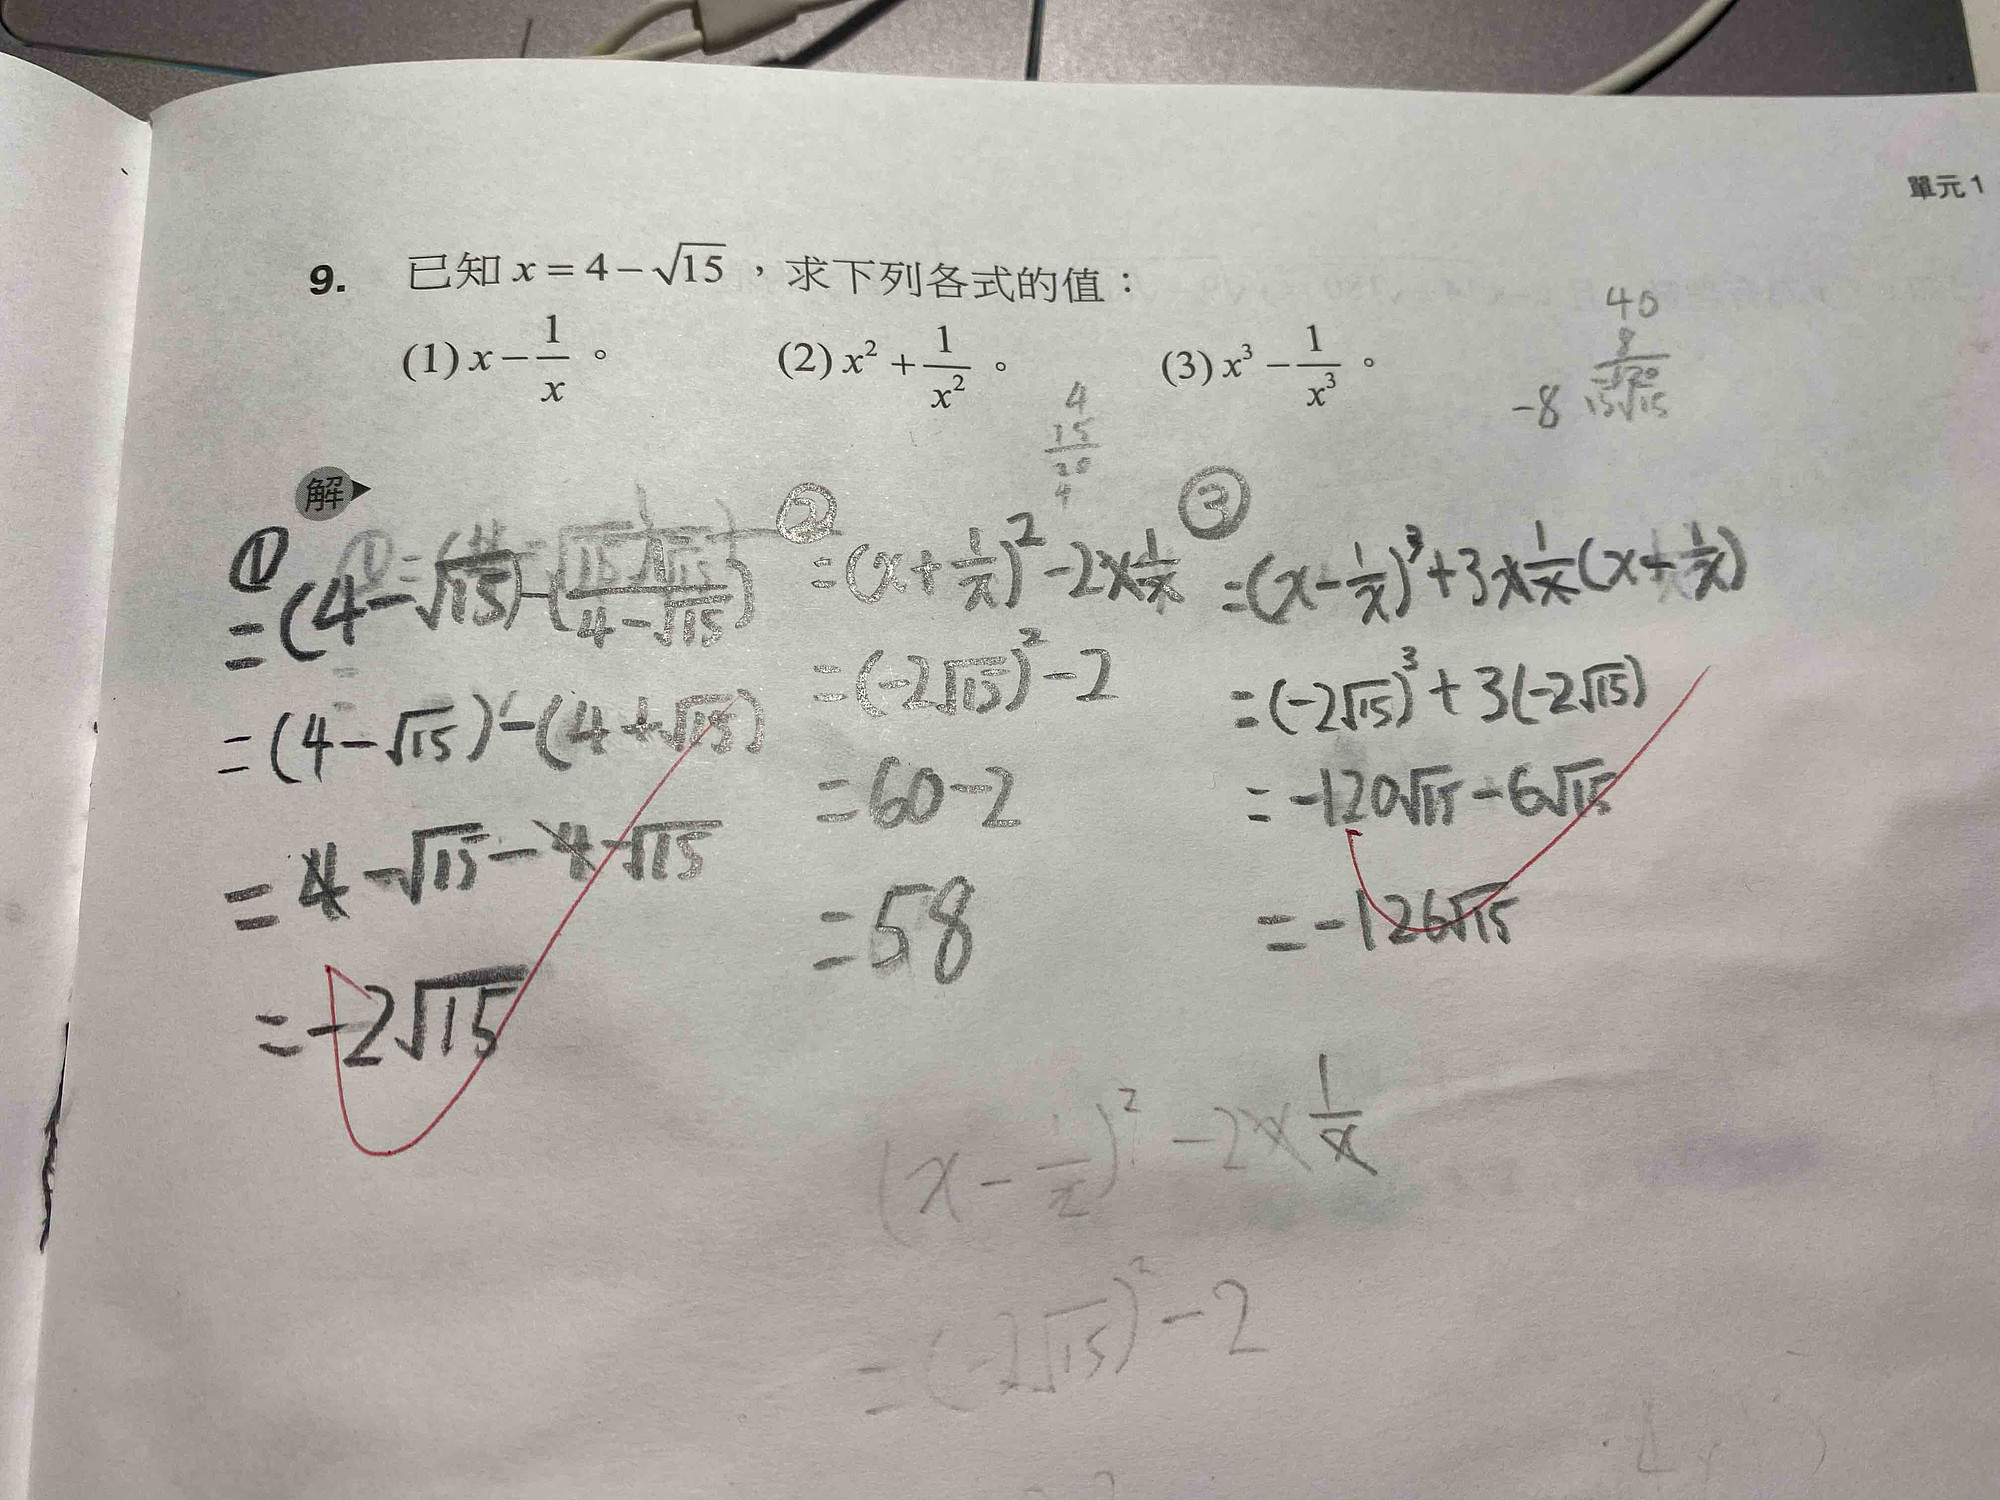 單元 1
9. 已知 x = 4 − √15 ，求下列各式的值：
(1) x − 1/x 。 (2) x² + 1/x² 。 (3) x³ − 1/x³ 。
40
8
-8 15√15
4
15
20
4
解
①
= (4 − √15) − (1/(4 − √15))
= (4 − √15) − (4 + √15)
= 4 − √15 − 4 − √15
= −2√15
②
= (x + 1/x)² − 2x 1/x
= (−2√15)² − 2
= 60 − 2
= 58
③
= (x − 1/x)³ + 3x 1/x (x − 1/x)
= (−2√15)³ + 3(−2√15)
= −120√15 − 6√15
= −126√15
(x − 1/x)² − 2x 1/x
= (−2√15)² − 2